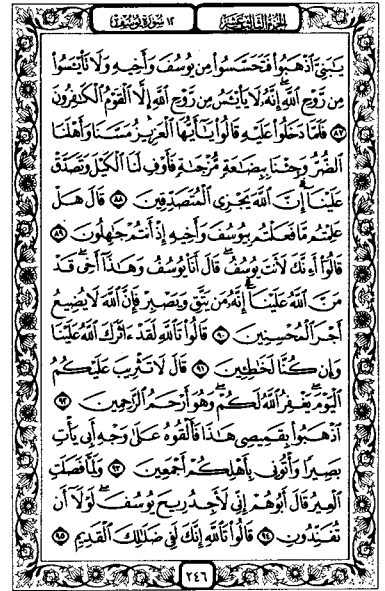 الجزء الثالث عشر ١٢ سورة يوسف
يَـٰبَنِىَّ ٱذْهَبُوا۟ فَتَحَسَّسُوا۟ مِن يُوسُفَ وَأَخِيهِ وَلَا تَا۟يْـَٔسُوا۟
مِن رَّوْحِ ٱللَّهِ ۖ إِنَّهُۥ لَا يَا۟يْـَٔسُ مِن رَّوْحِ ٱللَّهِ إِلَّا ٱلْقَوْمُ ٱلْكَـٰفِرُونَ
٨٧ فَلَمَّا دَخَلُوا۟ عَلَيْهِ قَالُوا۟ يَـٰٓأَيُّهَا ٱلْعَزِيزُ مَسَّنَا وَأَهْلَنَا
ٱلضُّرُّ وَجِئْنَا بِبِضَـٰعَةٍ مُّزْجَىٰةٍ فَأَوْفِ لَنَا ٱلْكَيْلَ وَتَصَدَّقْ
عَلَيْنَآ ۖ إِنَّ ٱللَّهَ يَجْزِى ٱلْمُتَصَدِّقِينَ ٨٨ قَالَ هَلْ
عَلِمْتُم مَّا فَعَلْتُم بِيُوسُفَ وَأَخِيهِ إِذْ أَنتُمْ جَـٰهِلُونَ ٨٩
قَالُوٓا۟ أَءِنَّكَ لَأَنتَ يُوسُفُ ۖ قَالَ أَنَا۠ يُوسُفُ وَهَـٰذَآ أَخِى ۖ قَدْ
مَنَّ ٱللَّهُ عَلَيْنَآ ۖ إِنَّهُۥ مَن يَتَّقِ وَيَصْبِرْ فَإِنَّ ٱللَّهَ لَا يُضِيعُ
أَجْرَ ٱلْمُحْسِنِينَ ٩٠ قَالُوا۟ تَٱللَّهِ لَقَدْ ءَاثَرَكَ ٱللَّهُ عَلَيْنَا
وَإِن كُنَّا لَخَـٰطِـِٔينَ ٩١ قَالَ لَا تَثْرِيبَ عَلَيْكُمُ
ٱلْيَوْمَ ۖ يَغْفِرُ ٱللَّهُ لَكُمْ ۖ وَهُوَ أَرْحَمُ ٱلرَّٰحِمِينَ ٩٢
ٱذْهَبُوا۟ بِقَمِيصِى هَـٰذَا فَأَلْقُوهُ عَلَىٰ وَجْهِ أَبِى يَأْتِ
بَصِيرًا وَأْتُونِى بِأَهْلِكُمْ أَجْمَعِينَ ٩٣ وَلَمَّا فَصَلَتِ
ٱلْعِيرُ قَالَ أَبُوهُمْ إِنِّى لَأَجِدُ رِيحَ يُوسُفَ ۖ لَوْلَآ أَن
تُفَنِّدُونِ ٩٤ قَالُوا۟ تَٱللَّهِ إِنَّكَ لَفِى ضَلَـٰلِكَ ٱلْقَدِيمِ ٩٥
٢٤٦